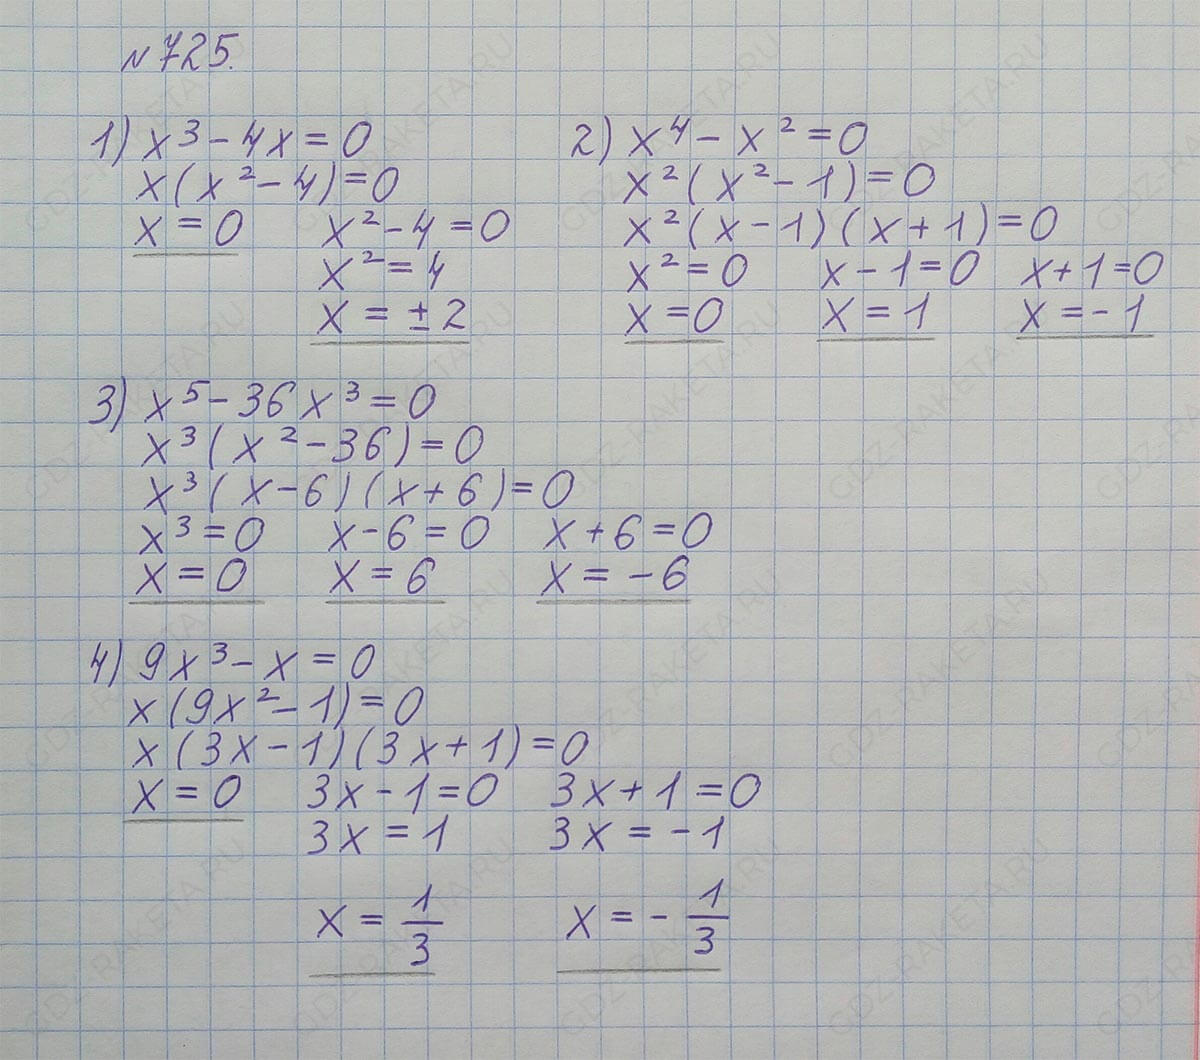 N 725.
1) x³ - 4x = 0
x(x² - 4) = 0
x = 0 x² - 4 = 0
x² = 4
x = ± 2
2) x⁴ - x² = 0
x²(x² - 1) = 0
x²(x - 1)(x + 1) = 0
x² = 0 x - 1 = 0 x + 1 = 0
x = 0 x = 1 x = - 1
3) x⁵ - 36x³ = 0
x³(x² - 36) = 0
x³(x - 6)(x + 6) = 0
x³ = 0 x - 6 = 0 x + 6 = 0
x = 0 x = 6 x = - 6
4) 9x³ - x = 0
x(9x² - 1) = 0
x(3x - 1)(3x + 1) = 0
x = 0 3x - 1 = 0 3x + 1 = 0
3x = 1 3x = - 1
x = 1/3 x = - 1/3
GDZ-RAKETA.RU